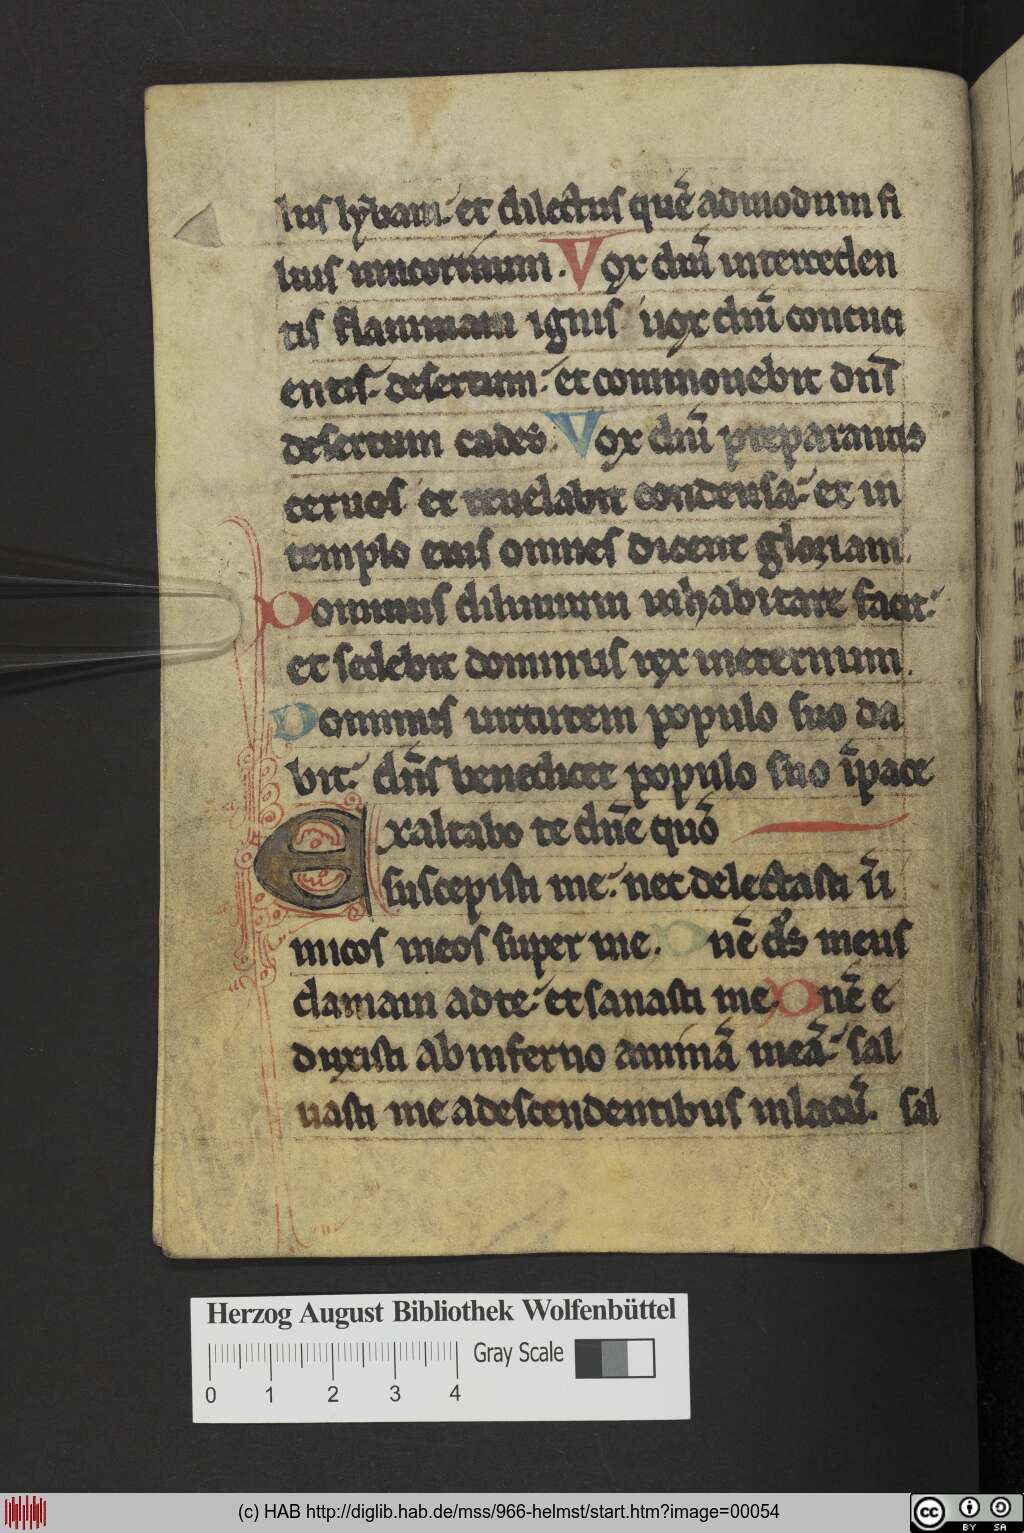 lus lybani. et dilectus quē admodum fi
lius unicornium. Vox dnī interceden
tis flammam ignis uox dnī concuci
entis desertum. et commouebit dns̄
desertum cades. Vox dnī preparantis
ceruos et reuelabit condensa. et in
templo eius omnes dicent gloriam.
Dominus diluuium inhabitare facit.
et sedebit dominus rex ineternum.
Dominus uirtutem populo suo da
bit. dns̄ benedicet populo suo īpace
Exaltabo te dnē quō
suscepisti me. nec delectasti ī
imicos meos super me. Dnē ds̄ meus
clamaui ad te. et sanasti me. Dnē e
duxisti ab inferno animā meā. sal
uasti me adescendentibus inlacū. sal
Herzog August Bibliothek Wolfenbüttel
Gray Scale
0 1 2 3 4
(c) HAB http://diglib.hab.de/mss/966-helmst/start.htm?image=00054
cc BY SA